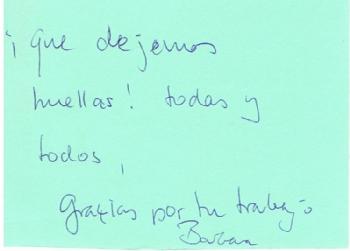 ¡ que dejemos
huellas! todas y
todos,
Gracias por tu trabajo
Barbara